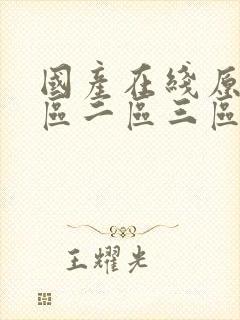 國產在綫原
區二區三區
王耀光